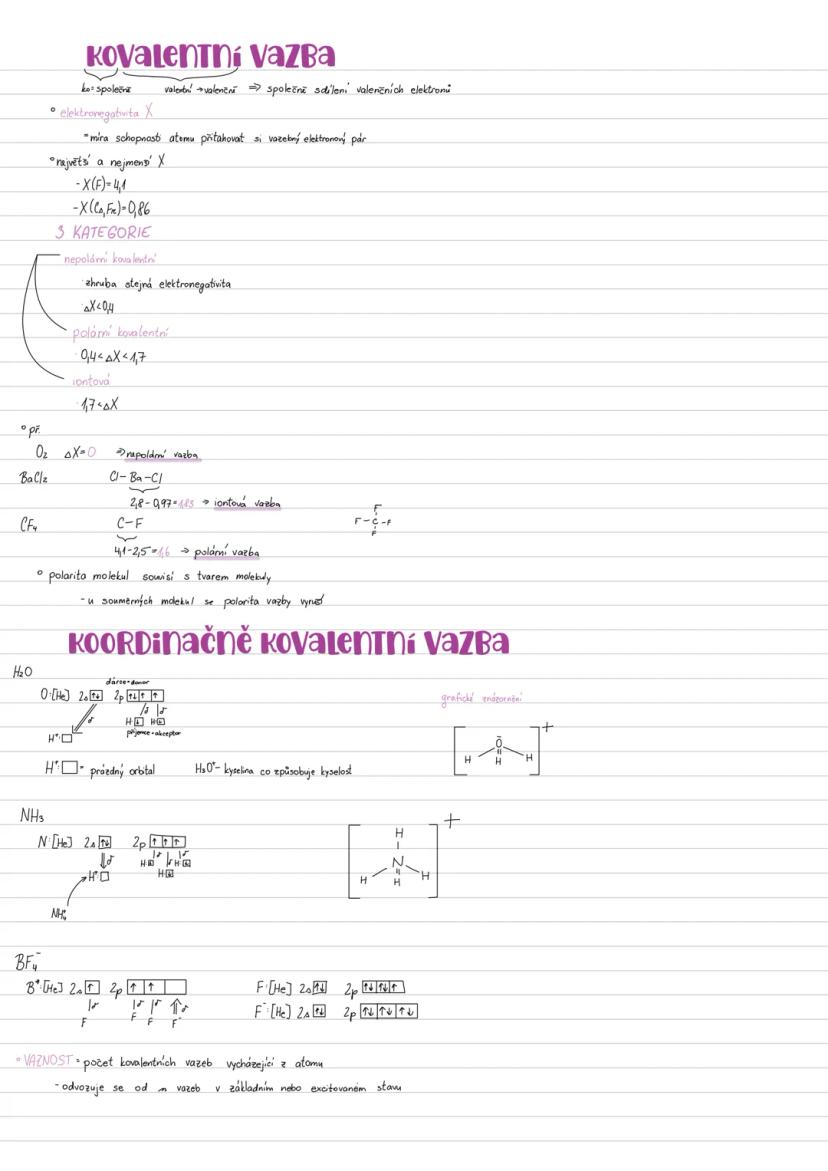 KOVALENTNÍ VAZBA
ko=společné valentní → valenční ⇒ společné sdílení valenčních elektronů
° elektronegativita X
=míra schopnosti atomu přitahovat si vazebný elektronový pár
° největší a nejmenší X
- X(F)=4,1
- X(Cs,Fr)=0,86
3 KATEGORIE
nepolární kovalentní
· zhruba stejná elektronegativita
· ΔX<0,4
polární kovalentní
· 0,4<ΔX<1,7
iontová
· 1,7<ΔX
° př.
O₂ ΔX=0 ⇒ nepolární vazba
BaCl₂ Cl-Ba-Cl
2,8-0,97=1,83 → iontová vazba
CF₄ C-F
F
F-C-F
F
4,1-2,5=1,6 → polární vazba
° polarita molekul souvisí s tvarem molekuly
- u souměrných molekul se polarita vazby vyruší
KOORDINAČNĚ KOVALENTNÍ VAZBA
H₂O
dárce=donor
O:[He] 2s ↑↓ 2p ↑↓ ↑ ↑
H ↓ H ↓
příjemce=akceptor
H⁺:□
grafické znázornění
O
H H H
+
H⁺:□= prázdný orbital H₃O⁺- kyselina co způsobuje kyselost
NH₃
N:[He] 2s ↑↓ 2p ↑ ↑ ↑
H ↓ H ↓
H ↓
H⁺□
NH₄
H
N
H H H
+
BF₄⁻
B*:[He] 2s ↑ 2p ↑ ↑
F F F F⁻
F:[He] 2s ↑↓ 2p ↑↓ ↑↓ ↑
F⁻:[He] 2s ↑↓ 2p ↑↓ ↑↓ ↑↓
° VAZNOST = počet kovalentních vazeb vycházející z atomu
- odvozuje se od n vazeb v základním nebo excitovaném stavu